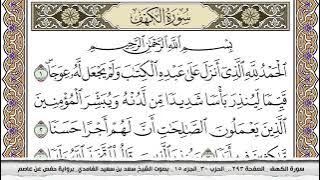 سورة الكهف
بسم الله الرحمن الرحيم
الحمد لله الذي أنزل على عبده الكتب ولم يجعل له عوجا ١
قيما لينذر بأسا شديدا من لدنه ويبشر المؤمنين
الذين يعملون الصلحت أن لهم أجرا حسنا ٢
سورة الكهف . الصفحة ٢٩٣ . الحزب ٣٠ . الجزء ١٥ . بصوت الشيخ سعد بن سعيد الغامدي . برواية حفص عن عاصم